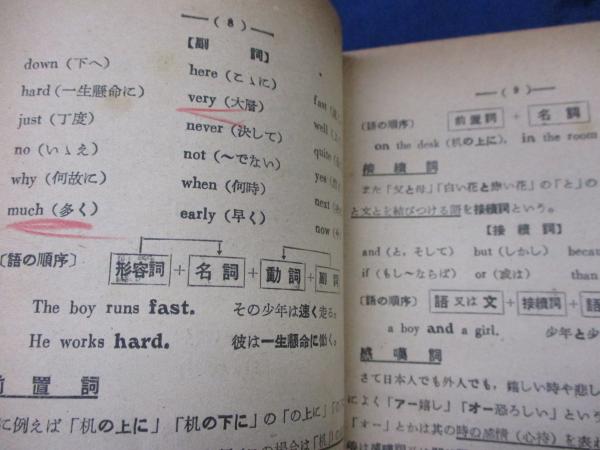 —( 8 )—
【副 詞】
down (下へ)
hard (一生懸命に)
just (丁度)
no (いゝえ)
why (何故に)
much (多く)
here (こゝに)
very (大層)
never (決して)
not (〜でない)
when (何時)
early (早く)
fast
well
quite
yes
next
now
〔語の順序〕 形容詞 + 名詞 + 動詞 + 副
The boy runs fast. その少年は速く走る。
He works hard. 彼は一生懸命に働く。
前 置 詞
に例えば「机の上に」「机の下に」の「の上に」
—( 9 )—
〔語の順序〕 前置詞 + 名詞
on the desk (机の上に), in the room
接 續 詞
また「父と母」「白い花と赤い花」の「と」の
と文とを結びつける語を接續詞という。
【接 續 詞】
and (と, そして) but (しかし) becau
if (もし〜ならば) or (或は) than
〔語の順序〕 語 又は 文 + 接續詞 + 語
a boy and a girl. 少年と少
感 嘆 詞
さて日本人でも外人でも, 嬉しい時や悲し
によく「アー嬉し」「オー恐ろしい」という
「オー」とかは其の時の感情 (心持) を表わ